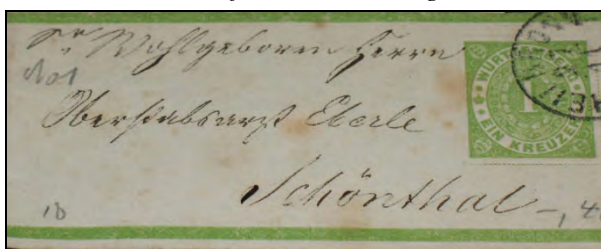 Sr. Wohlgeboren Herrn
Oberstabsarzt Eberle
Schönthal
WÜRTTEMBERG
1
EIN KREUZER
18